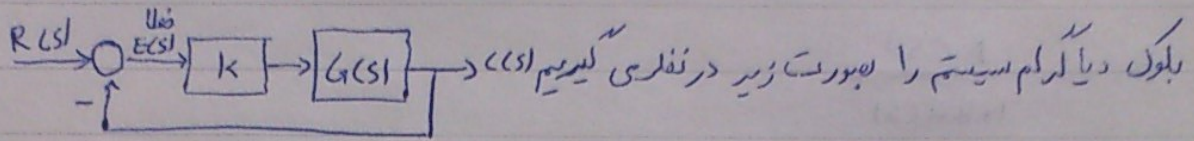 بلوک دیاگرام سیستم را بصورت زیر در نظر می گیریم
R(s)
خطا
E(s)
k
G(s)
C(s)
-